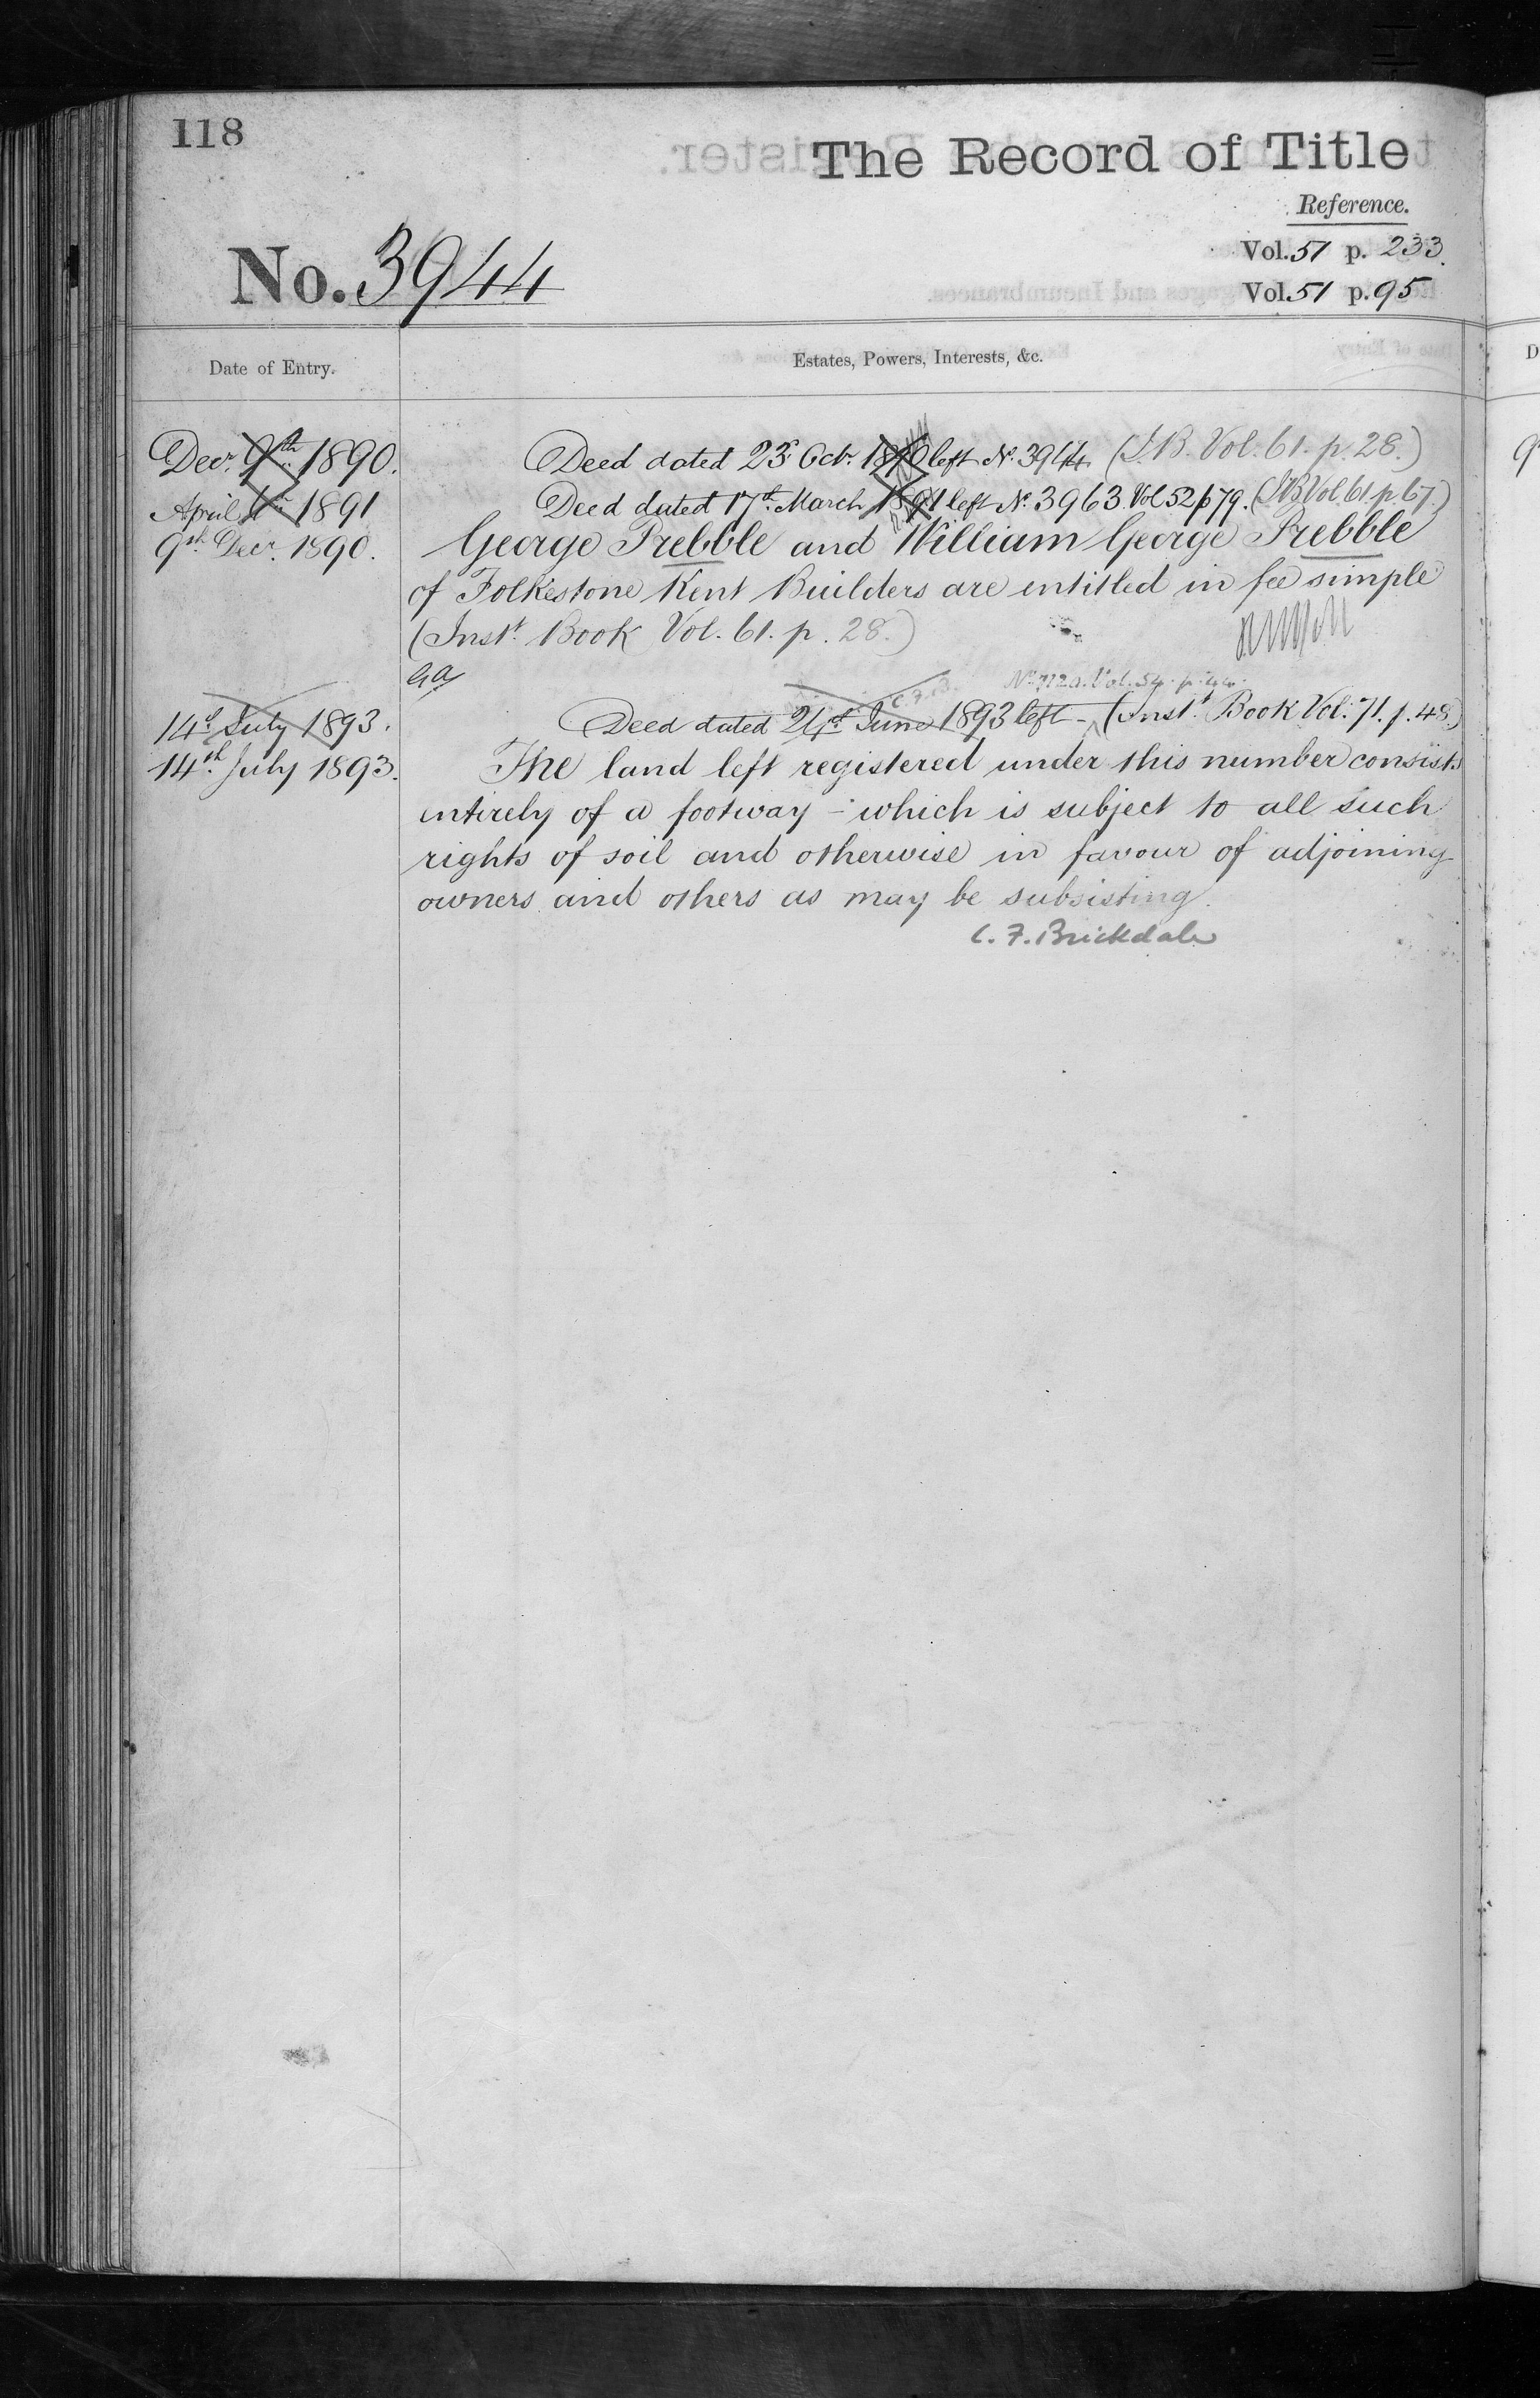 118
The Record of Title
Reference.
Vol. 51 p. 233.
No. 3944
Vol. 51 p. 95
Date of Entry.
Estates, Powers, Interests, &c.
Decr. 9th 1890. Deed dated 23d. Octr. 1890 left No. 3944 (I.B. Vol. 61. p. 28.)
April 1891 Deed dated 17th. March 1891 left No. 3963. Vol 52 p 79. (I.B. Vol. 61. p. 67.)
9th Decr. 1890. George Prebble and William George Prebble
of Folkestone Kent Builders are entitled in fee simple
(Inst. Book Vol. 61. p. 28.)
No. 712a. Vol. 54. p. 44.
14th July 1893. Deed dated 24th June 1893 left - (Inst. Book Vol. 71. p. 48.)
14th. July 1893. The land left registered under this number consists
entirely of a footway - which is subject to all such
rights of soil and otherwise in favour of adjoining
owners and others as may be subsisting.
C. F. Brickdale